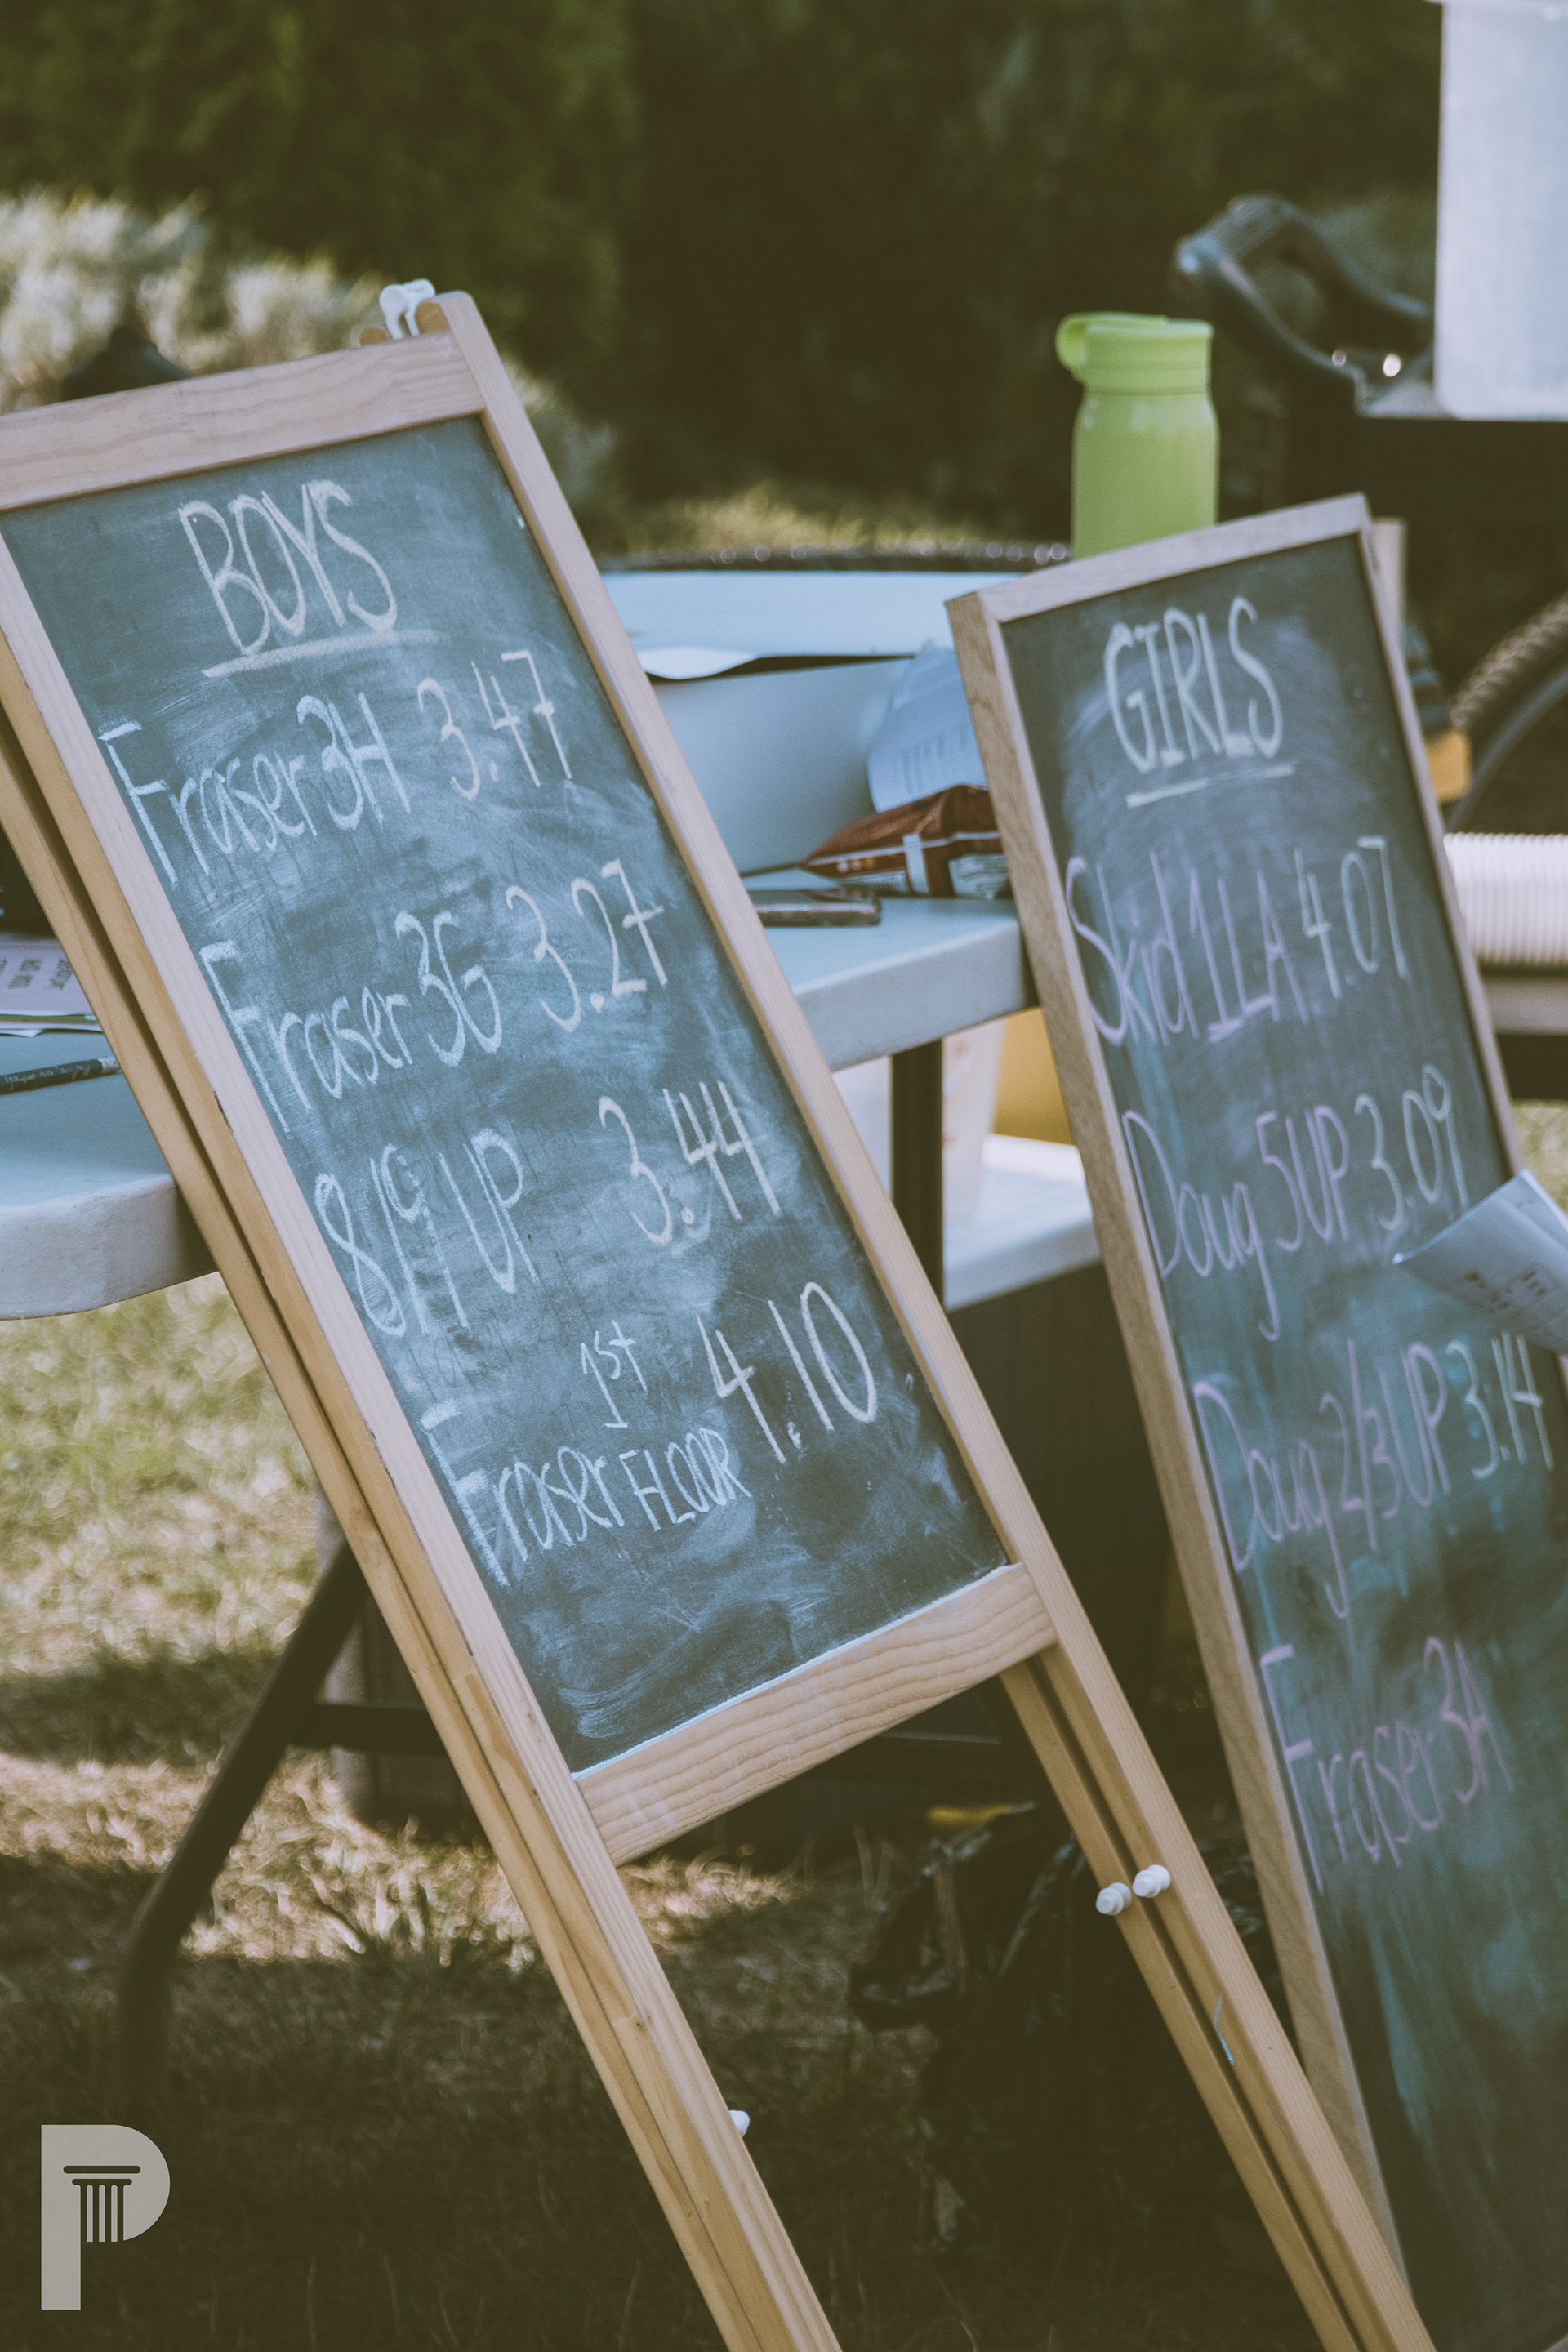 BOYS
Fraser 3H 3.47
Fraser 3G 3.27
8/9 UP 3.44
Fraser 1st FLOOR 4.10
GIRLS
Skid 1LA 4.07
Doug 5UP 3.09
Doug 2/3UP 3.14
Fraser 3A
P